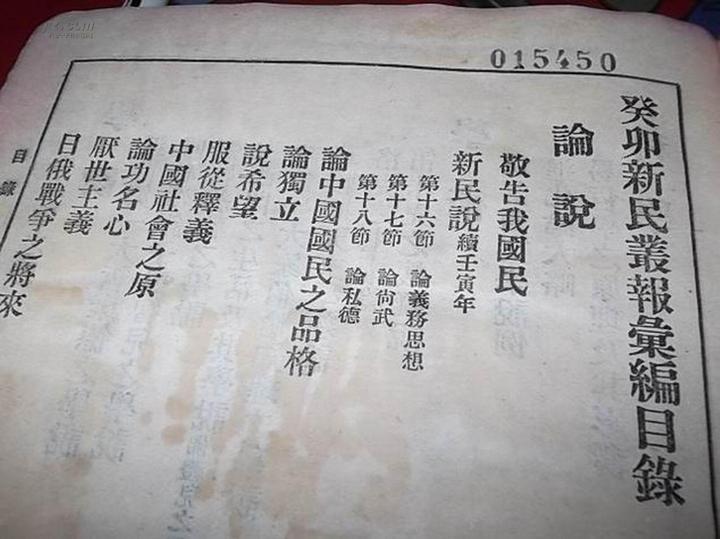 015450
癸卯新民叢報彙編目錄
論說
敬告我國民
新民說續壬寅年
第十六節 論義務思想
第十七節 論尙武
第十八節 論私德
論中國國民之品格
論獨立
說希望
服從釋義
中國社會之原
論功名心
厭世主義
日俄戰爭之將來
目錄